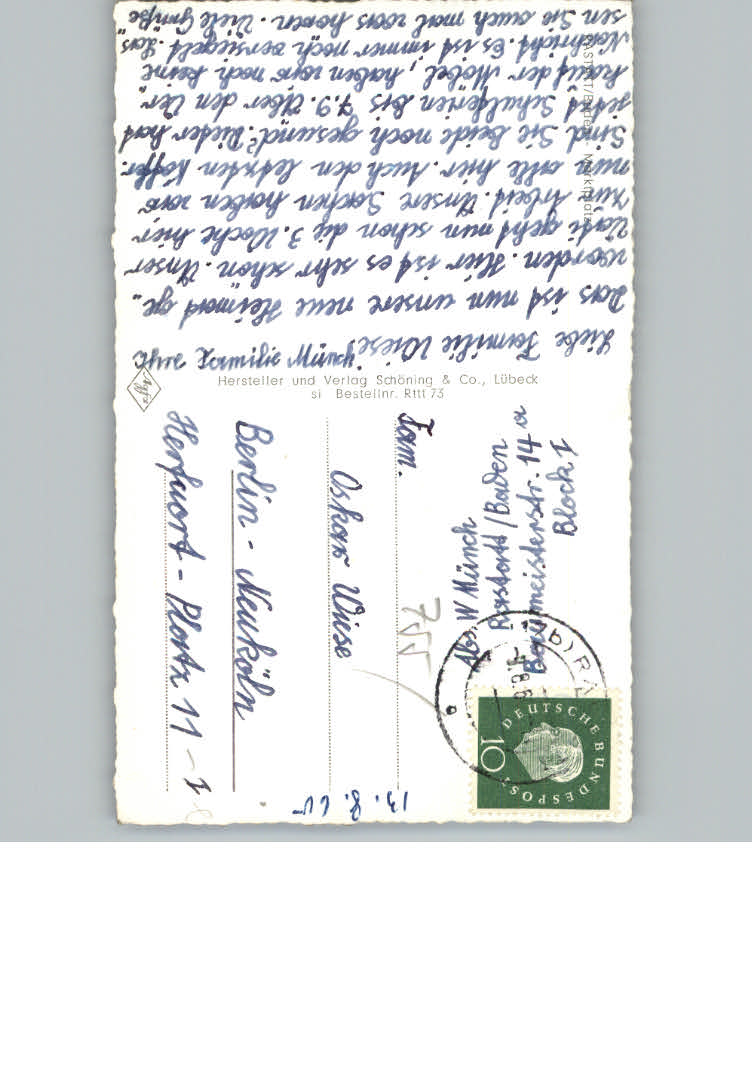 Liebe Familie Wiese!
Das ist nun unsere neue Heimat ge„
worden. Hier ist es sehr schön. Unser
Vati geht nun schon die 3. Woche hier
zur Arbeit. Unsere Sachen haben wir
nun alle hier. Auch den letzten Koffer.
Sind Sie beide noch gesund? Dieter hat
jetzt Schulferien bis 7.9. Über den Ver„
kauf der Möbel, haben wir noch keine
Nachricht. Es ist immer noch versiegelt. Las„
sen Sie auch mal was hören. Viele Grüße
Ihre Familie Münch
RASTATT/Baden - Marktplatz
Agfa
Hersteller und Verlag Schöning & Co., Lübeck
si Bestellnr. Rttt 73
Abs. W Münch
Rastatt / Baden
Baumeisterstr. 14 a
Block 1
Fam.
Oskar Wiese
Berlin - Neuköln
Herfuort - Platz 11 - 1
755
13. 8. 60
DEUTSCHE BUNDESPOST
10